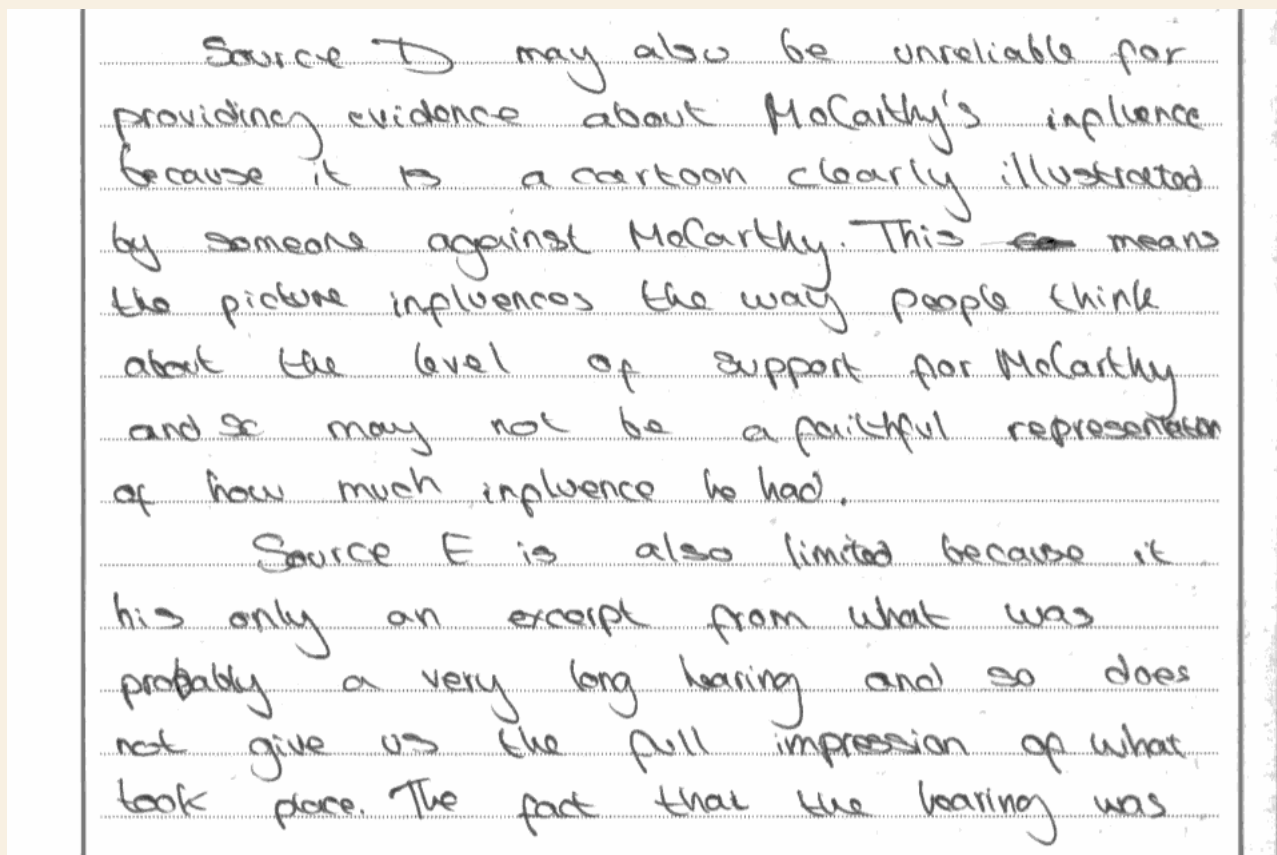 Source D may also be unreliable for
providing evidence about McCarthy's influence
because it is a cartoon clearly illustrated
by someone against McCarthy. This means
the picture influences the way people think
about the level of support for McCarthy
and so may not be a faithful representation
of how much influence he had.
Source E is also limited because it
his only an excerpt from what was
probably a very long hearing and so does
not give us the full impression of what
took place. The fact that the hearing was